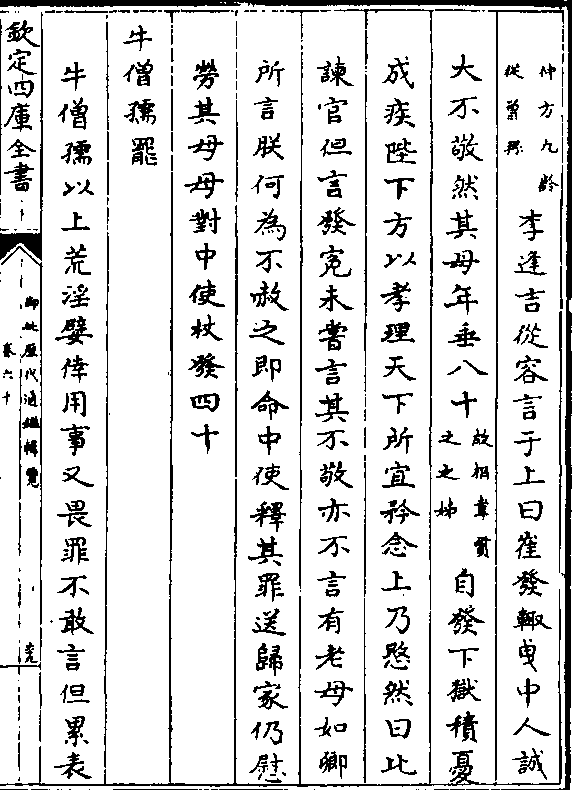 仲方九齡
從曾孫
李逢吉從容言于上曰崔發輙曳中人誠
大不敬然其母年垂八十
故相韋貫
之之姊
自發下獄積憂
成疾陛下方以孝理天下所宜矜念上乃愍然曰比
諫官但言發寃未嘗言其不敬亦不言有老母如卿
所言朕何為不赦之即命中使釋其罪送歸家仍慰
勞其母母對中使杖發四十
牛僧孺罷
牛僧孺以上荒淫嬖倖用事又畏罪不敢言但累表
欽定四庫全書
御批歷代通鑑輯覽
卷六十